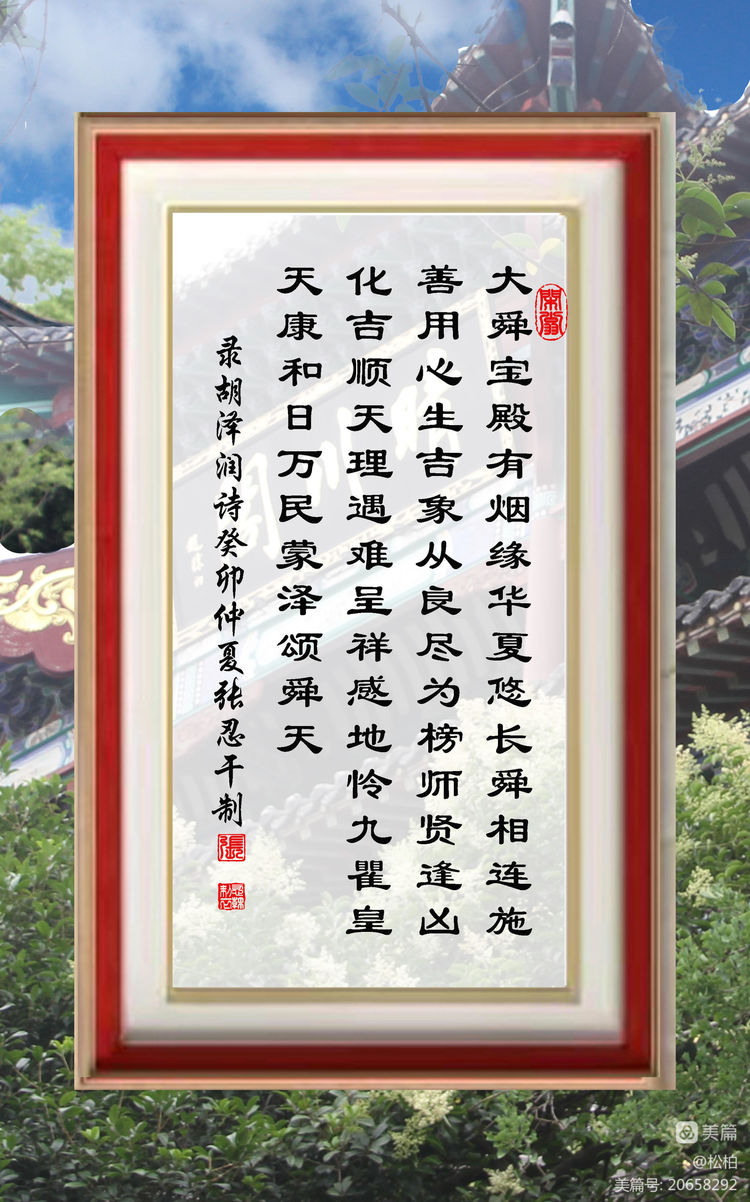 大舜宝殿有烟缘华夏悠长舜相连施
善用心生吉象从良尽为榜师贤逢凶
化吉顺天理遇难呈祥感地怜九瞿皇
天康和日万民蒙泽颂舜天
录胡泽润诗癸卯仲夏张忍干制
張
美篇
@松柏
美篇号: 20658292